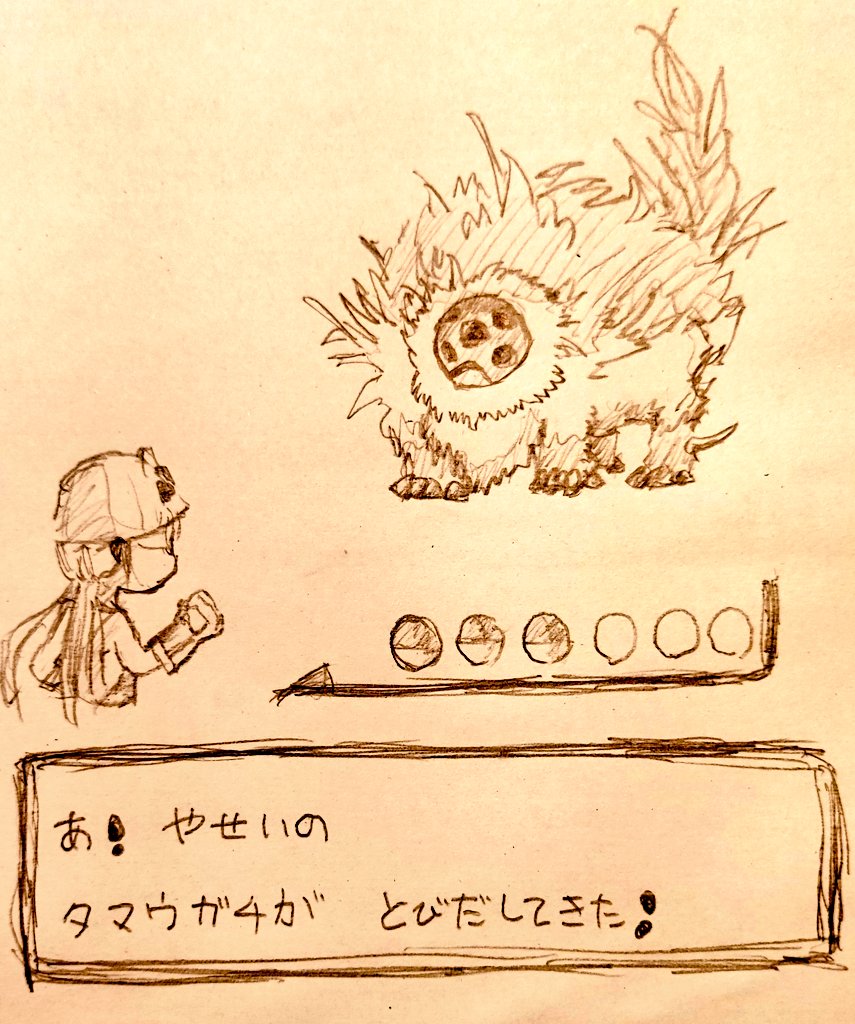 あ! やせいの
タマウガチが とびだしてきた!